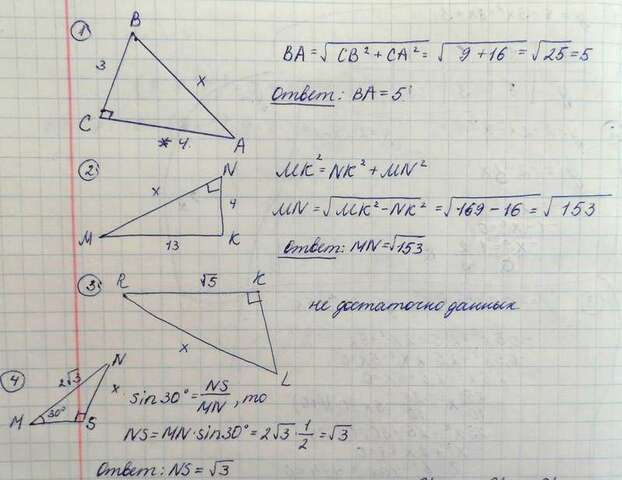 1
B
3
x
C
4
A
BA = √CB² + CA² = √9 + 16 = √25 = 5
Ответ: BA = 5
2
N
x
4
M
13
K
MK² = NK² + MN²
MN = √MK² - NK² = √169 - 16 = √153
Ответ: MN = √153
3
R
√5
K
x
L
не достаточно данных
4
N
2√3
x
M
30°
S
sin 30° = NS/MN, то
NS = MN · sin 30° = 2√3 · 1/2 = √3
Ответ: NS = √3